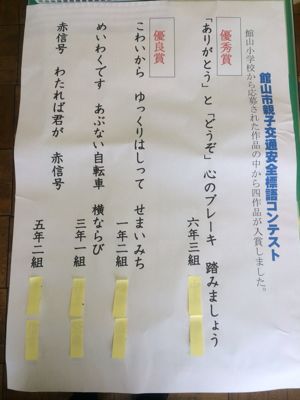 館山市親子交通安全標語コンテスト
館山小学校から応募された作品の中から四作品が入賞しました。
優秀賞
「ありがとう」と「どうぞ」心のブレーキ 踏みましょう
六年三組
優良賞
こわいから ゆっくりはしって せまいみち
一年二組
めいわくです あぶない自転車 横ならび
三年一組
赤信号 わたれば君が 赤信号
五年二組